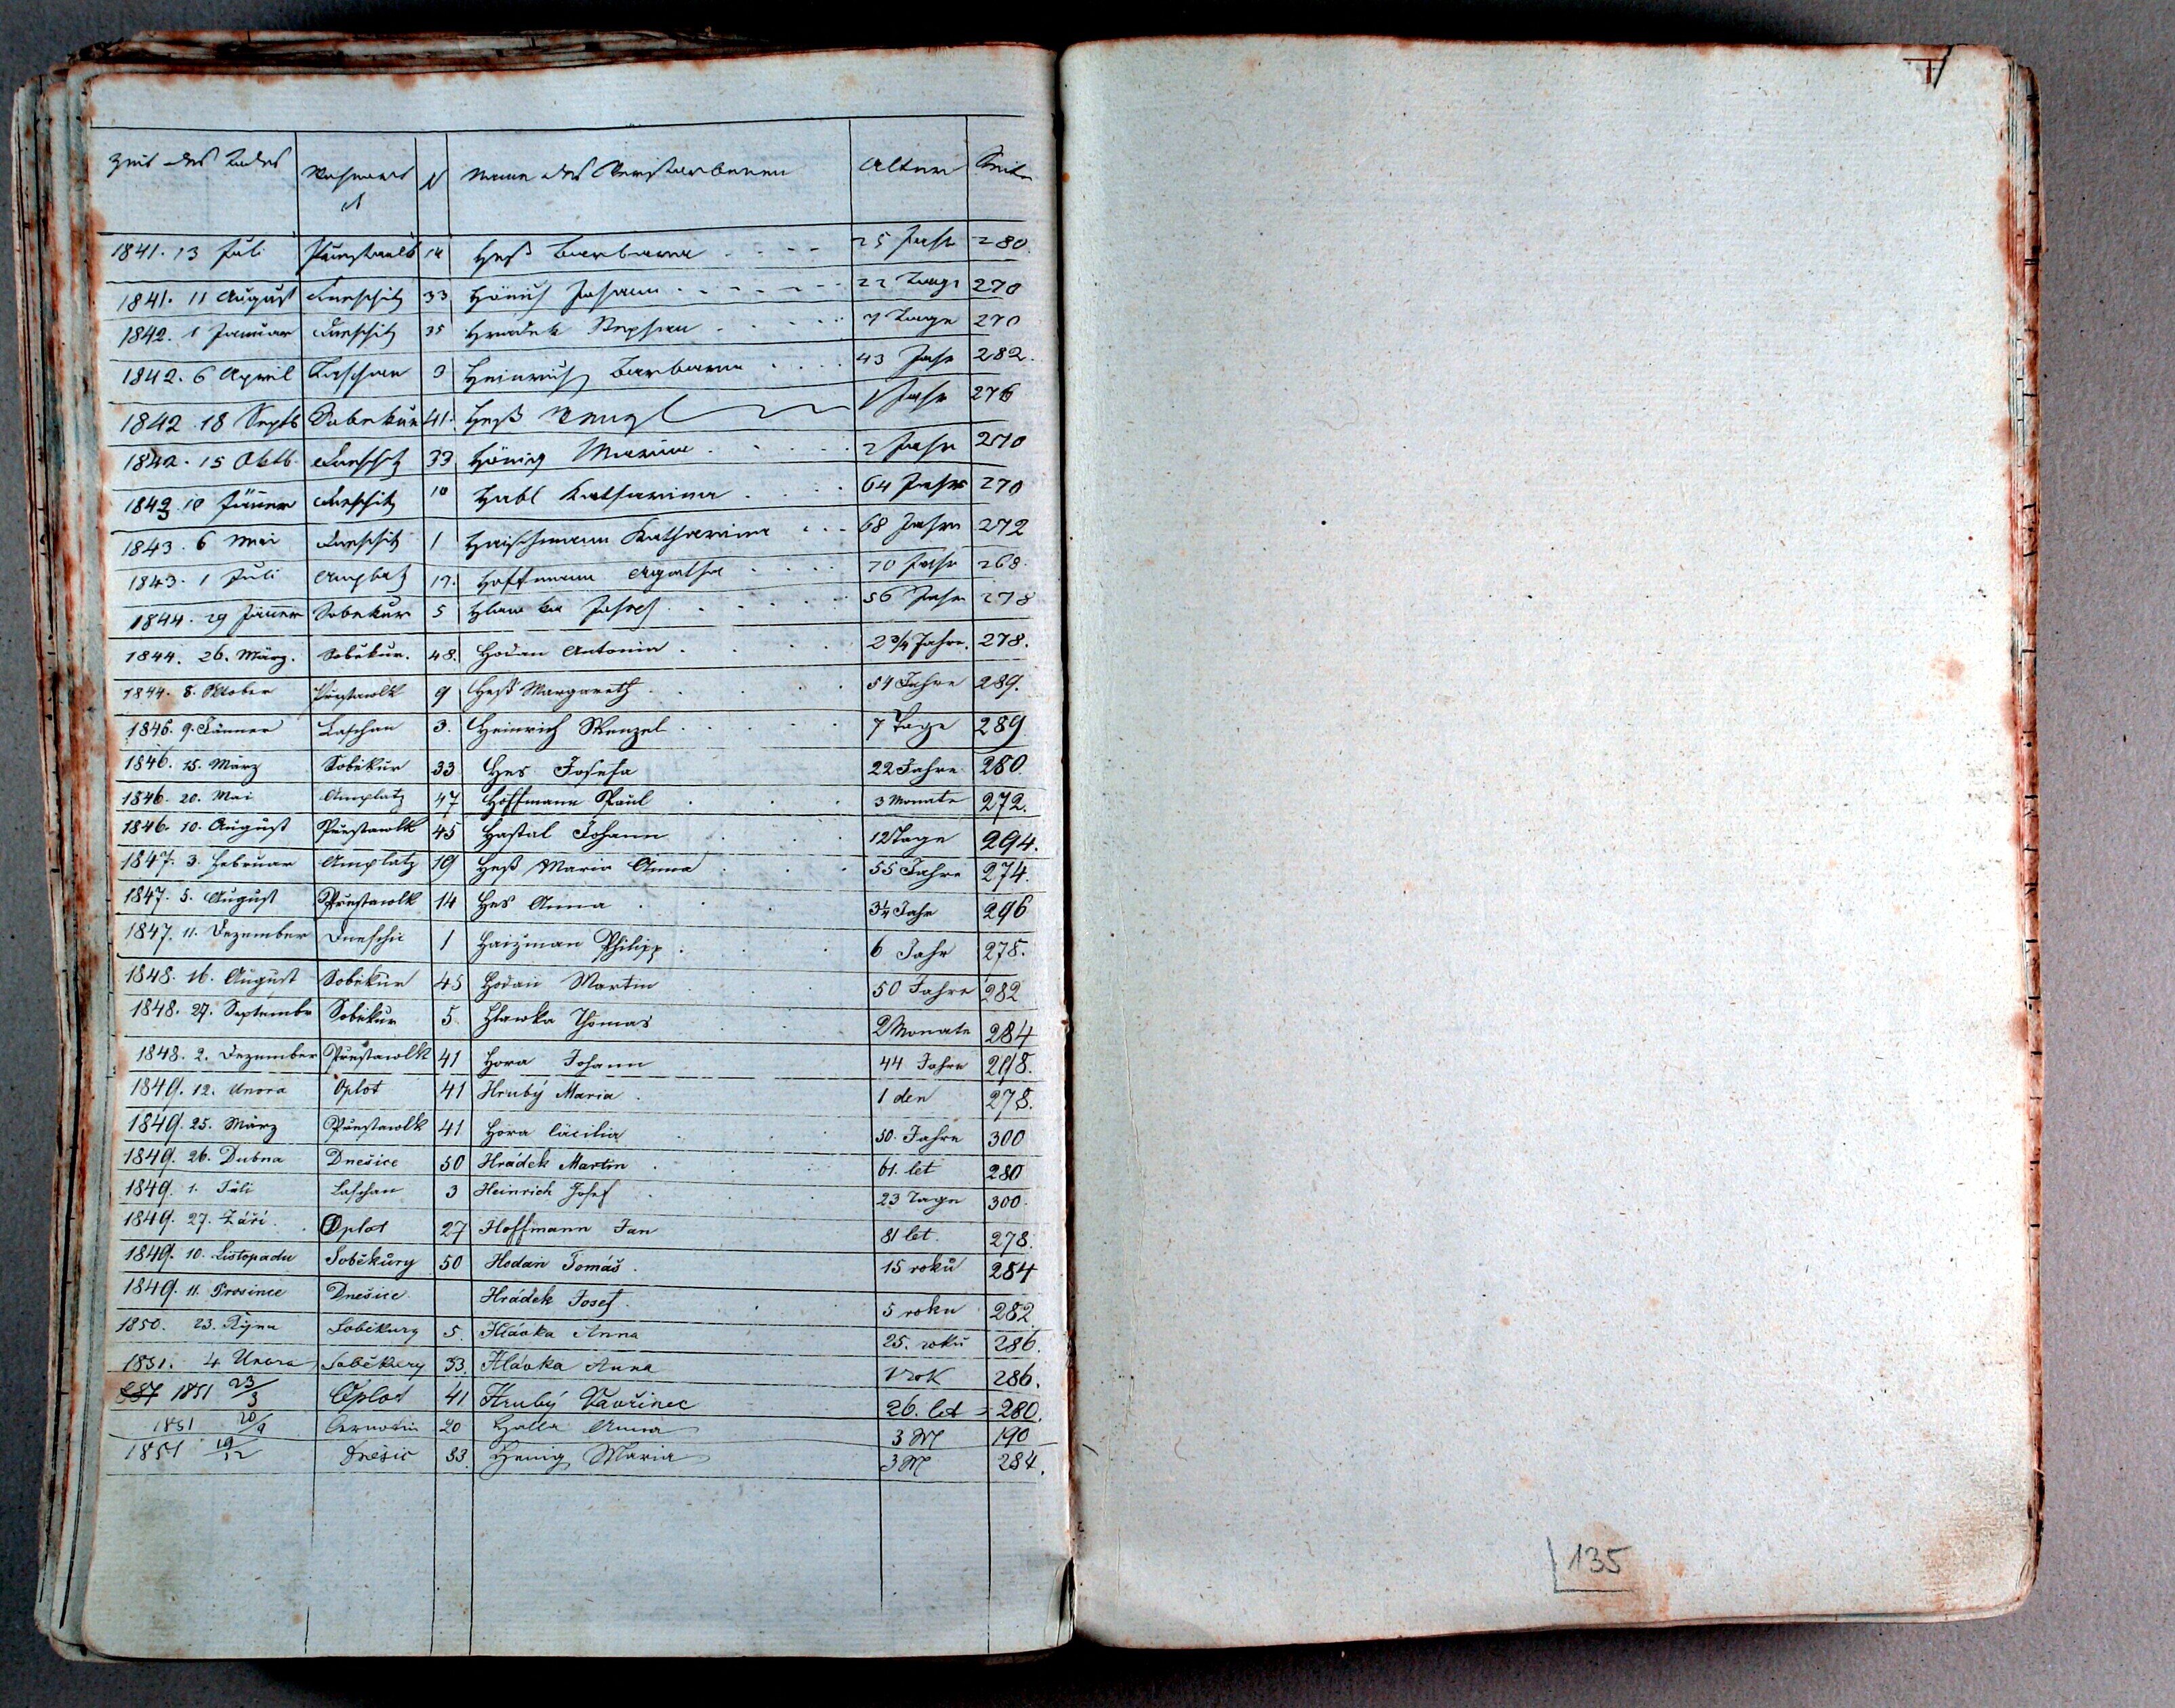 Zeit des Todes Wohnort N Name des Verstorbenen Alter Seite
1841. 13 Juli Přestawlk 14 Heß Barbara 25 Jahr 280.
1841. 11 August Dneschitz 33 Hönich Johann 22 Tage 270
1842. 1 Januar Dneschitz 35 Hradek Stephan 7 Tage 270
1842. 6 April Laschan 3 Heinrich Barbara 43 Jahr 282.
1842. 18 Septb Sobekur 41. Heß Wenzl 1 Jahr 276
1842. 15 Oktb. Dneschitz 33 Hönig Maria 2 Jahr 270
1843. 10 Jänner Dneschitz 10 Habl Katharina 64 Jahr 270
1843. 6 Mai Dneschitz 1 Haischmann Katharina 68 Jahr 272
1843. 1 Juli Amplatz 17. Hoffmann Agatha 70 Jahr 268.
1844. 29 Jänner Sobekur 5 Hlawka Josef 56 Jahr 278
1844. 26. März. Soběkur. 48. Hodan Antonia 2 3/4 Jahre. 278.
1844. 8. Oktober Přestawlk 9 Heß Margareth 54 Jahre 289.
1846. 9. Jänner Laschan 3. Heinrich Wenzel 7 Tage 289
1846. 15. März Soběkur 33 Hes Josefa 22 Jahre 280.
1846. 20. Mai Amplatz 47 Hoffmann Paul 3 Monate 272.
1846. 10. August Přestawlk 45 Hastal Johann 12 Tage 294.
1847. 3. Februar Amplatz 19 Heß Maria Anna 55 Jahre 274.
1847. 5. August Přestawlk 14 Hes Anna 3¼ Jahr 296
1847. 11. Dezember Dneschic 1 Haizman Philipp 6 Jahr 278.
1848. 16. August Soběkur 45 Hodan Martin 50 Jahre 282
1848. 27. September Soběkur 5. Hlawka Thomas 2 Monate 284
1848. 2. Dezember Přestawlk 41 Hora Johann 44 Jahre 298.
1849. 12. Unora Oplot 41 Hrubý Maria 1 den 278.
1849. 25. März Přestawlk 41 Hora Cäcilia 50. Jahre 300
1849. 26. Dubna Dnešice 50 Hrádek Martin 61. let 280
1849. 1. Juli Laschan 3 Heinrich Josef 23 Tage 300.
1849. 27. Září. Oplot 27 Hoffmann Jan 81 let. 278.
1849. 10. Listopadu Soběkůry 50 Hodan Tomáš. 15 roků 284
1849. 11. Prosince Dnešice. Hrádek Josef. 5 roku 282
1850. 23. Října Soběkury 5. Hlávka Anna 25. roků 286.
1851. 4 Unora Soběkury 33. Hlávka Anna 1 rok 286.
287 1851 23/3 Oplot 41 Hrubý Vavřinec 26. let 280.
1851 20/9 Černotin 20 Halla Anna 3 M 190
1851 19/12 Dnešic 33. Henig Maria 3 M 284.
135